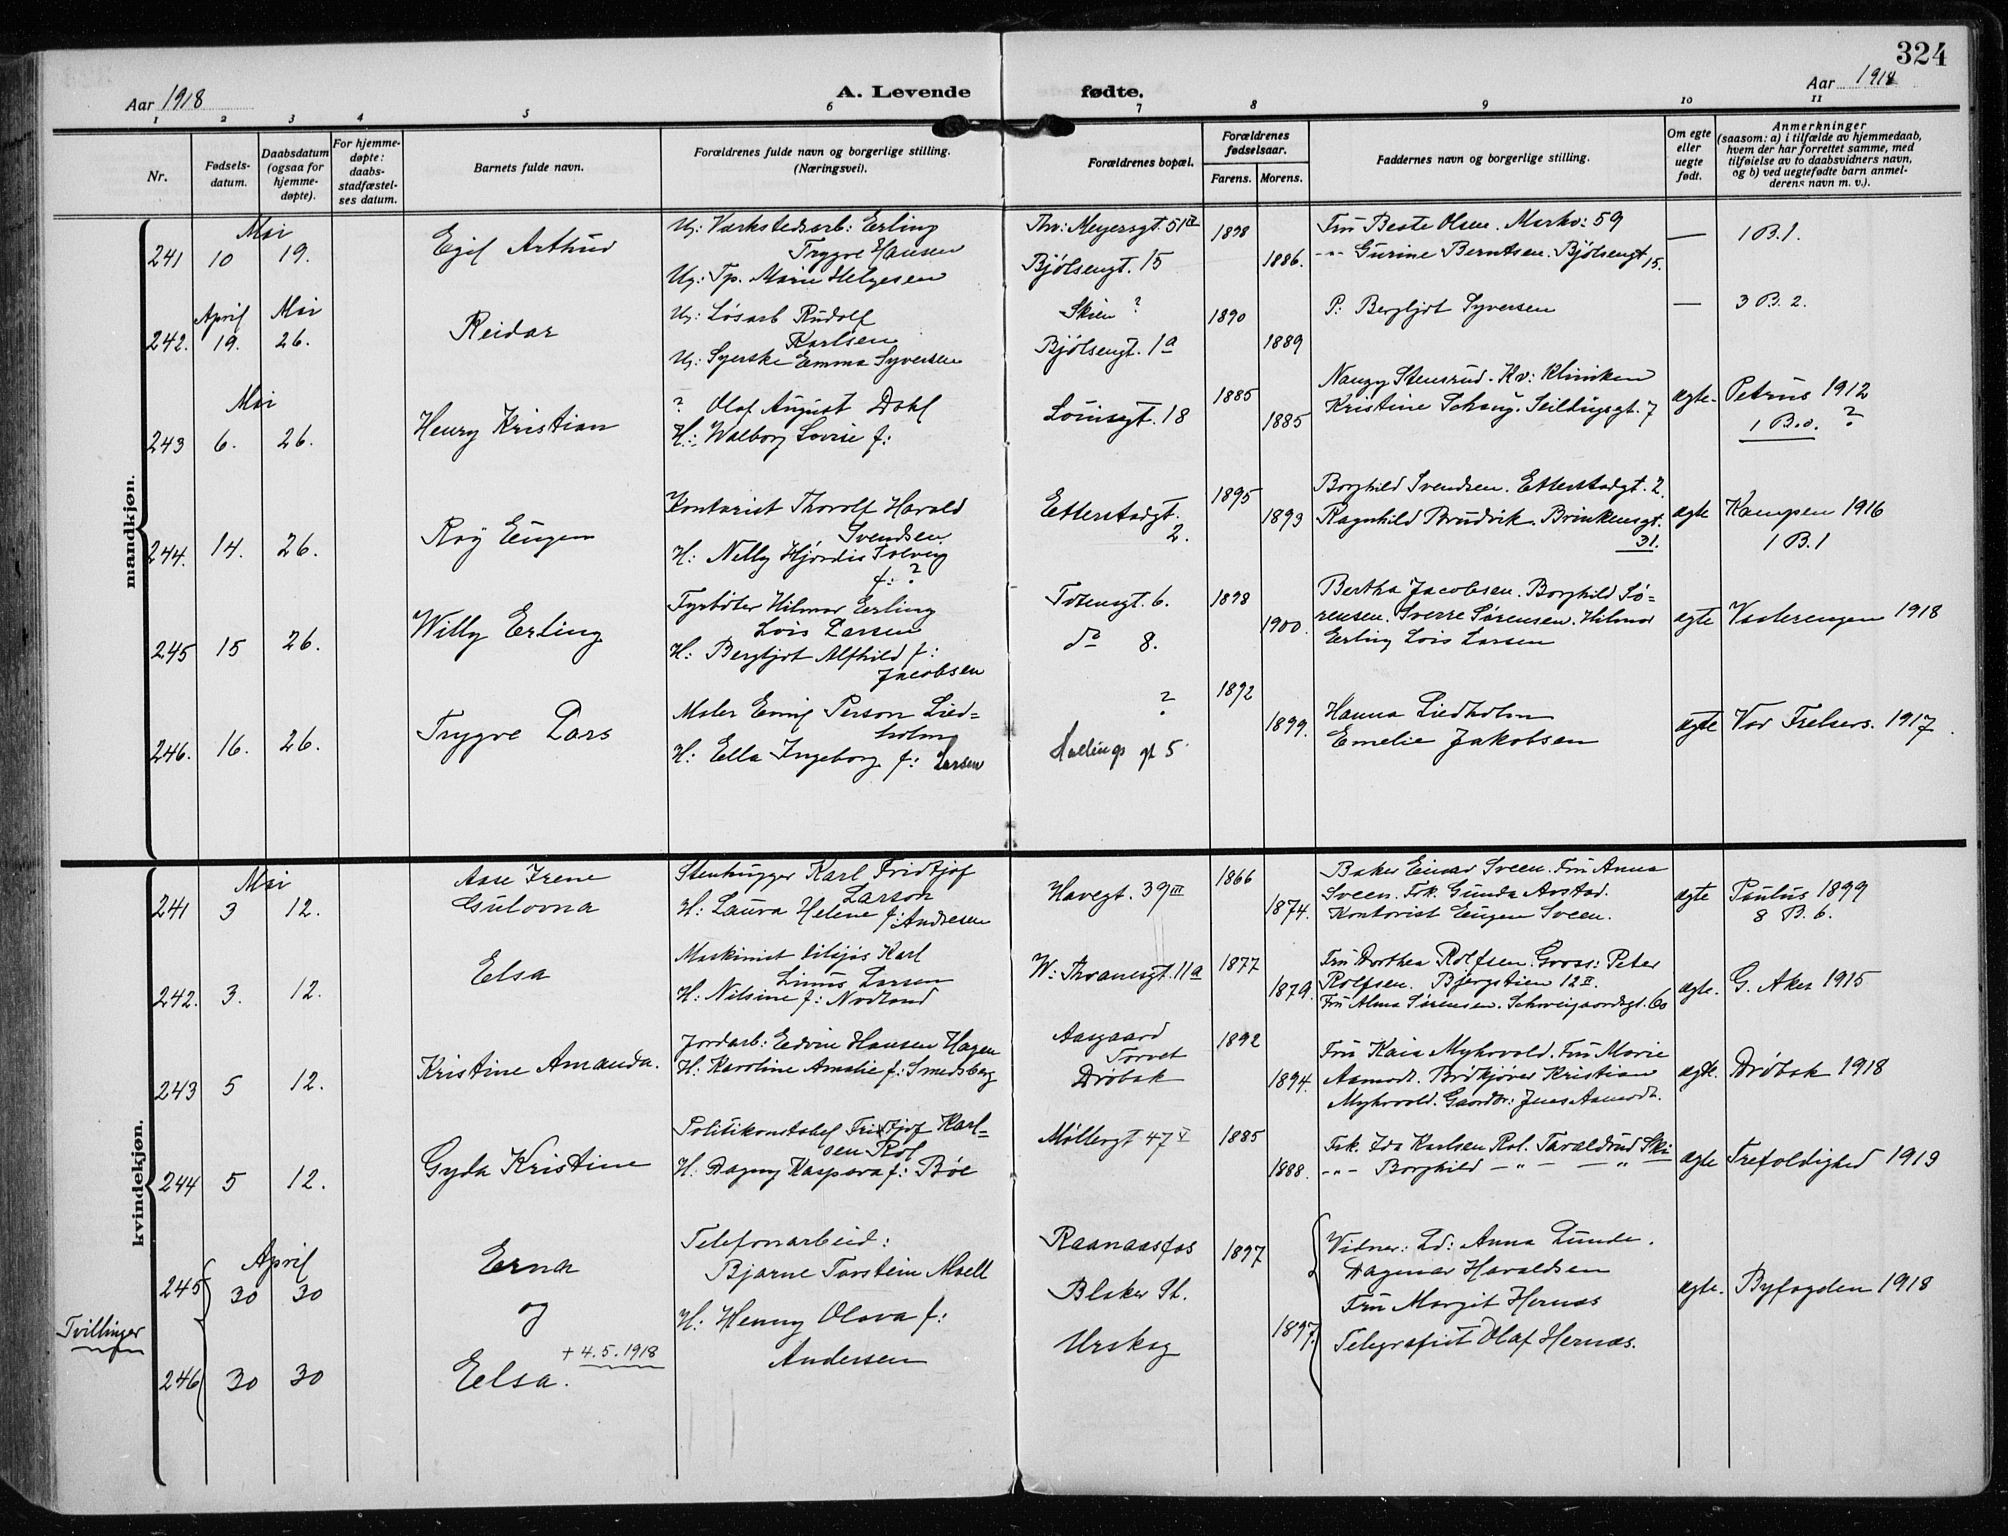 324
Aar 1918
A. Levende fødte.
Aar 1918
1 2 3 4 5 6 7 8 9 10 11
Nr.
Fødsels-datum.
Daabsdatum (ogsaa for hjemme-døpte).
For hjemme-døpte: daabs-stadfæstel-ses datum.
Barnets fulde navn.
Forældrenes fulde navn og borgerlige stilling. (Næringsvei).
Forældrenes bopæl.
Forældrenes fødselsaar.
Farens. Morens.
Faddernes navn og borgerlige stilling.
Om egte eller uegte født.
Anmerkninger (saasom: a) i tilfælde av hjemmedaab, hvem der har forrettet samme, med tilføielse av to daabsvidners navn, og b) ved uegtefødte barn anmel-derens navn m. v.).
mandkjøn.
Mai
241 10 19. Egil Arthur
Ug: Værkstedsarb: Erling
Trygve Hansen
Ug: Tp. Marie Helgesen
Thv: Meyersgt. 51 IV
Bjølsengt. 15
1898
1886.
Fru Beate Olsen. Markv: 59
-"- Gurine Berntsen. Bjølsengt 15.
—
1 B. 1.
April Mai
242. 19. 26. Reidar
Ug: Løsarb Rudolf
Karlsen
Ug: Syerske Emma Syversen
Skien ?
Bjølsengt. 1a
1890
1889
P: Bergljot Syversen
—
3 B. 2.
Mai
243 6. 26. Henry Kristian
? Olaf August Dahl
H: Walborg Lovise f:
Louisegt. 18
1885
1885
Nanzy Stensrud. Kv: Kliniken
Kristine Schaug. Seildugsgt. 7
egte-
Petrus 1912
1 B. 0. ?
244. 14. 26. Roy Eugen
Kontorist Thorolf Harald
Svendsen
H: Nelly Hjørdis Solveig
f: ?
Etterstadgt.
2.
1895
1893
Borghild Svendsen. Etterstadgt. 2.
Ragnhild Brudvik. Brinkensgt.
31.
egte
Kampen 1916
1 B. 1
245 15 26. Willy Erling
Fyrbøter Hilmar Erling
Lois Larsen
H: Bergljot Alfhild f:
Jacobsen
Totengt. 6.
do 8.
1898
1900.
Bertha Jacobsen. Borghild Sø=
rensen. Sverre Sørensen. Hilmar
Erling Lois Larsen
egte
Vaalerengen 1918
246. 16. 26. Trygve Lars
Maler Emil Person Lied=
holm
H: Ella Ingeborg f: Larsen
?
Hallings gt 5
1892
1899.
Hanna Liedholm
Emelie Jakobsen
egte
Vor Frelsers. 1917.
kvindekjøn.
Mai
241 3 12. Aase Irene
Gulovna
Stenhugger Karl Fridtjof
Larson
H: Laura Helene f: Andresen
Havegt. 39 III
1866
1874.
Baker Einar Sveen. Fru Anna
Sveen. Frk. Gunda Aastad.
Kontorist Eugen Sveen.
egte
Paulus 1899
8 B. 6.
242. 3. 12. Elsa
Maskinist Karl
Linus Larsen
H: Nilsine f: Nodland
W: Thranesgt. 11a
1877
1879.
Fru Dorthea Rolfsen. Gross: Peter
Rolfsen. Bjergstien 12 II.
Fru Alma Sørensen. Schweigaardsgt. 60
egte.
G. Aker 1915
243 5 12. Kristine Amanda.
Jordarb: Edvin Hansen Hagen
H: Karoline Amalie f: Smedsberg
Aasgaard
Torvet
Drøbak
1892
1894.
Fru Kaia Myhrvold. Fru Marie
Aamodt. Brökjører Kristian
Myhrvold. Gaardbr: Jens Aamodt.
egte.
Drøbak 1918
244 5 12. Gyda Kristine
Politikonstabel Fridtjof Karl=
sen Rol
H: Dagny Kaspara f: Bøe
Møllergt 47 V
1885
1888.
Frk. Ida Karlsen Rol. Taraldrud Ski
-"- Borghild -"- - -"-
egte
Trefoldighed 1913
Tvillinger
April
245 30 30 Erna
og
246 30 30 Elsa. + 4.5.1918
Telefonarbeid:
Bjarne Torstein Moell
H: Henny Olava f:
Andersen
Raanaasfos
Blaker St.
Urskog
1897
1897.
Vidner: Ld: Anna Lunde.
Dagmar Haraldsen
Fru Margit Hernæs
Telegrafist Olaf Hernæs.
egte.
Byfogden 1918